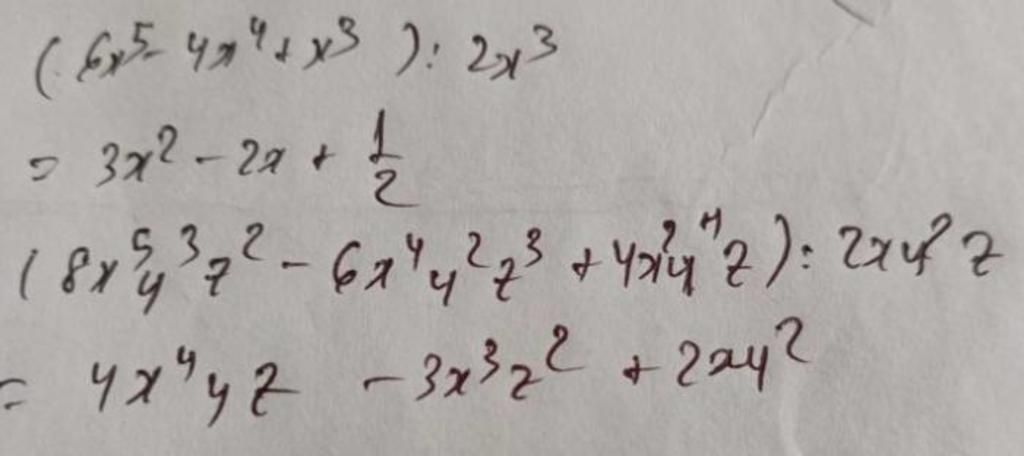 (6x⁵ - 4x⁴ + x³) : 2x³
= 3x² - 2x + 1/2
(8x⁵y³z² - 6x⁴y²z³ + 4x²y⁴z) : 2xy²z
= 4x⁴yz - 3x³z² + 2xy²